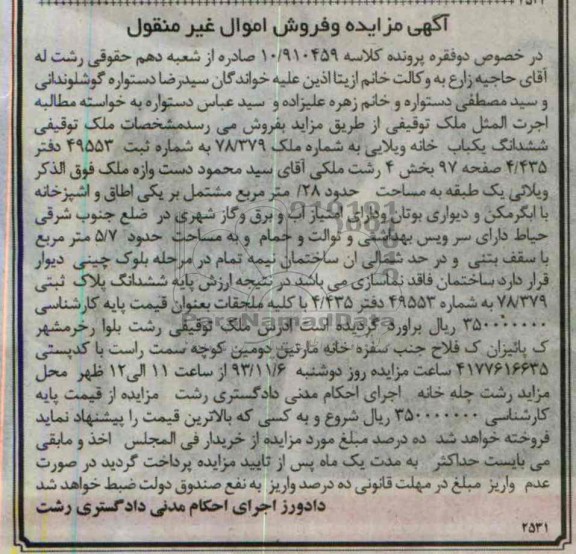 آگهی مزایده وفروش اموال غیر منقول
در خصوص دوفقره پرونده کلاسه ۱۰/۹۱۰۴۵۹ صادره از شعبه دهم حقوقی رشت له
آقای حاجیه زارع به وکالت خانم ازیتا اذین علیه خواندگان سیدرضا دستواره گوشلوندانی
و سید مصطفی دستواره و خانم زهره علیزاده و سید عباس دستواره به خواسته مطالبه
اجرت المثل ملک توقیفی از طریق مزاید بفروش می رسدمشخصات ملک توقیفی
ششدانگ یکباب خانه ویلایی به شماره ملک ۷۸/۳۷۹ به شماره ثبت ۴۹۵۵۳ دفتر
۴/۴۳۵ صفحه ۹۷ بخش ۴ رشت ملکی آقای سید محمود دست وازه ملک فوق الذکر
ویلائی یک طبقه به مساحت حدود ۲۸/ متر مربع مشتمل بر یکی اطاق و اشپزخانه
با ابگرمکن و دیواری بوتان ودارای امتیاز آب و برق وگاز شهری در ضلع جنوب شرقی
حیاط دارای سر ویس بهداشتی و توالت و حمام و به مساحت حدود ۵/۷ متر مربع
با سقف بتنی و در حد شمالی ان ساختمان نیمه تمام در مرحله بلوک چینی دیوار
قرار دارد ساختمان فاقد نماسازی می باشد در نتیجه ارزش پایه ششدانگ پلاک ثبتی
۷۸/۳۷۹ به شماره ۴۹۵۵۳ دفتر ۴/۴۳۵ با کلیه ملحقات بعنوان قیمت پایه کارشناسی
۳۵۰۰۰۰۰۰۰ ریال براورد گردیده است ادرس ملک توقیفی رشت بلوا رخرمشهر
ک پائیزان ک فلاح جنب سفره خانه مارتین دومین کوچه سمت راست با کدپستی
۴۱۷۷۶۱۶۶۳۵ ساعت مزایده روز دوشنبه ۹۳/۱۱/۶ از ساعت ۱۱ الی۱۲ ظهر محل
مزاید رشت چله خانه اجرای احکام مدنی دادگستری رشت مزایده از قیمت پایه
کارشناسی ۳۵۰۰۰۰۰۰۰ ریال شروع و به کسی که بالاترین قیمت را پیشنهاد نماید
فروخته خواهد شد ده درصد مبلغ مورد مزایده از خریدار فی المجلس اخذ و مابقی
می بایست حداکثر به مدت یک ماه پس از تایید مزایده پرداخت گردید در صورت
عدم واریز مبلغ در مهلت قانونی ده درصد واریز به نفع صندوق دولت ضبط خواهد شد
دادورز اجرای احکام مدنی دادگستری رشت
۲۵۳۱
ParsNamadData